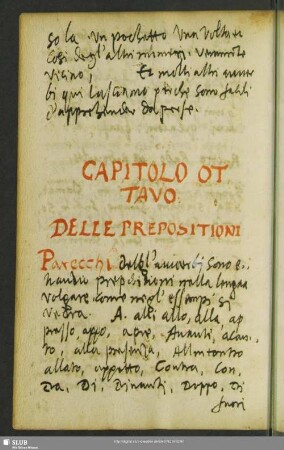 so la. un pochetto una volta et
cosi degl'altri numeri.
vicino, Et molti altri auuer
bi qui lasciamo perche sono facili
d'apprehender da per se.
CAPITOLO OT
TAVO.
DELLE PREPOSITIONI
Parecchi delgl'auuerbij sono e:
tiandio prepositioni nella lingua
volgare come negl'essempi si
vedra. A. alli allo, alla, ap
presso, appo, apre, Auanti, acan
to, alla presenza, All'incontro
allato, appetto, Contra, Con,
Da, Di, Dinanti, Doppo, Di
fuori
SLUB
Wir führen Wissen.